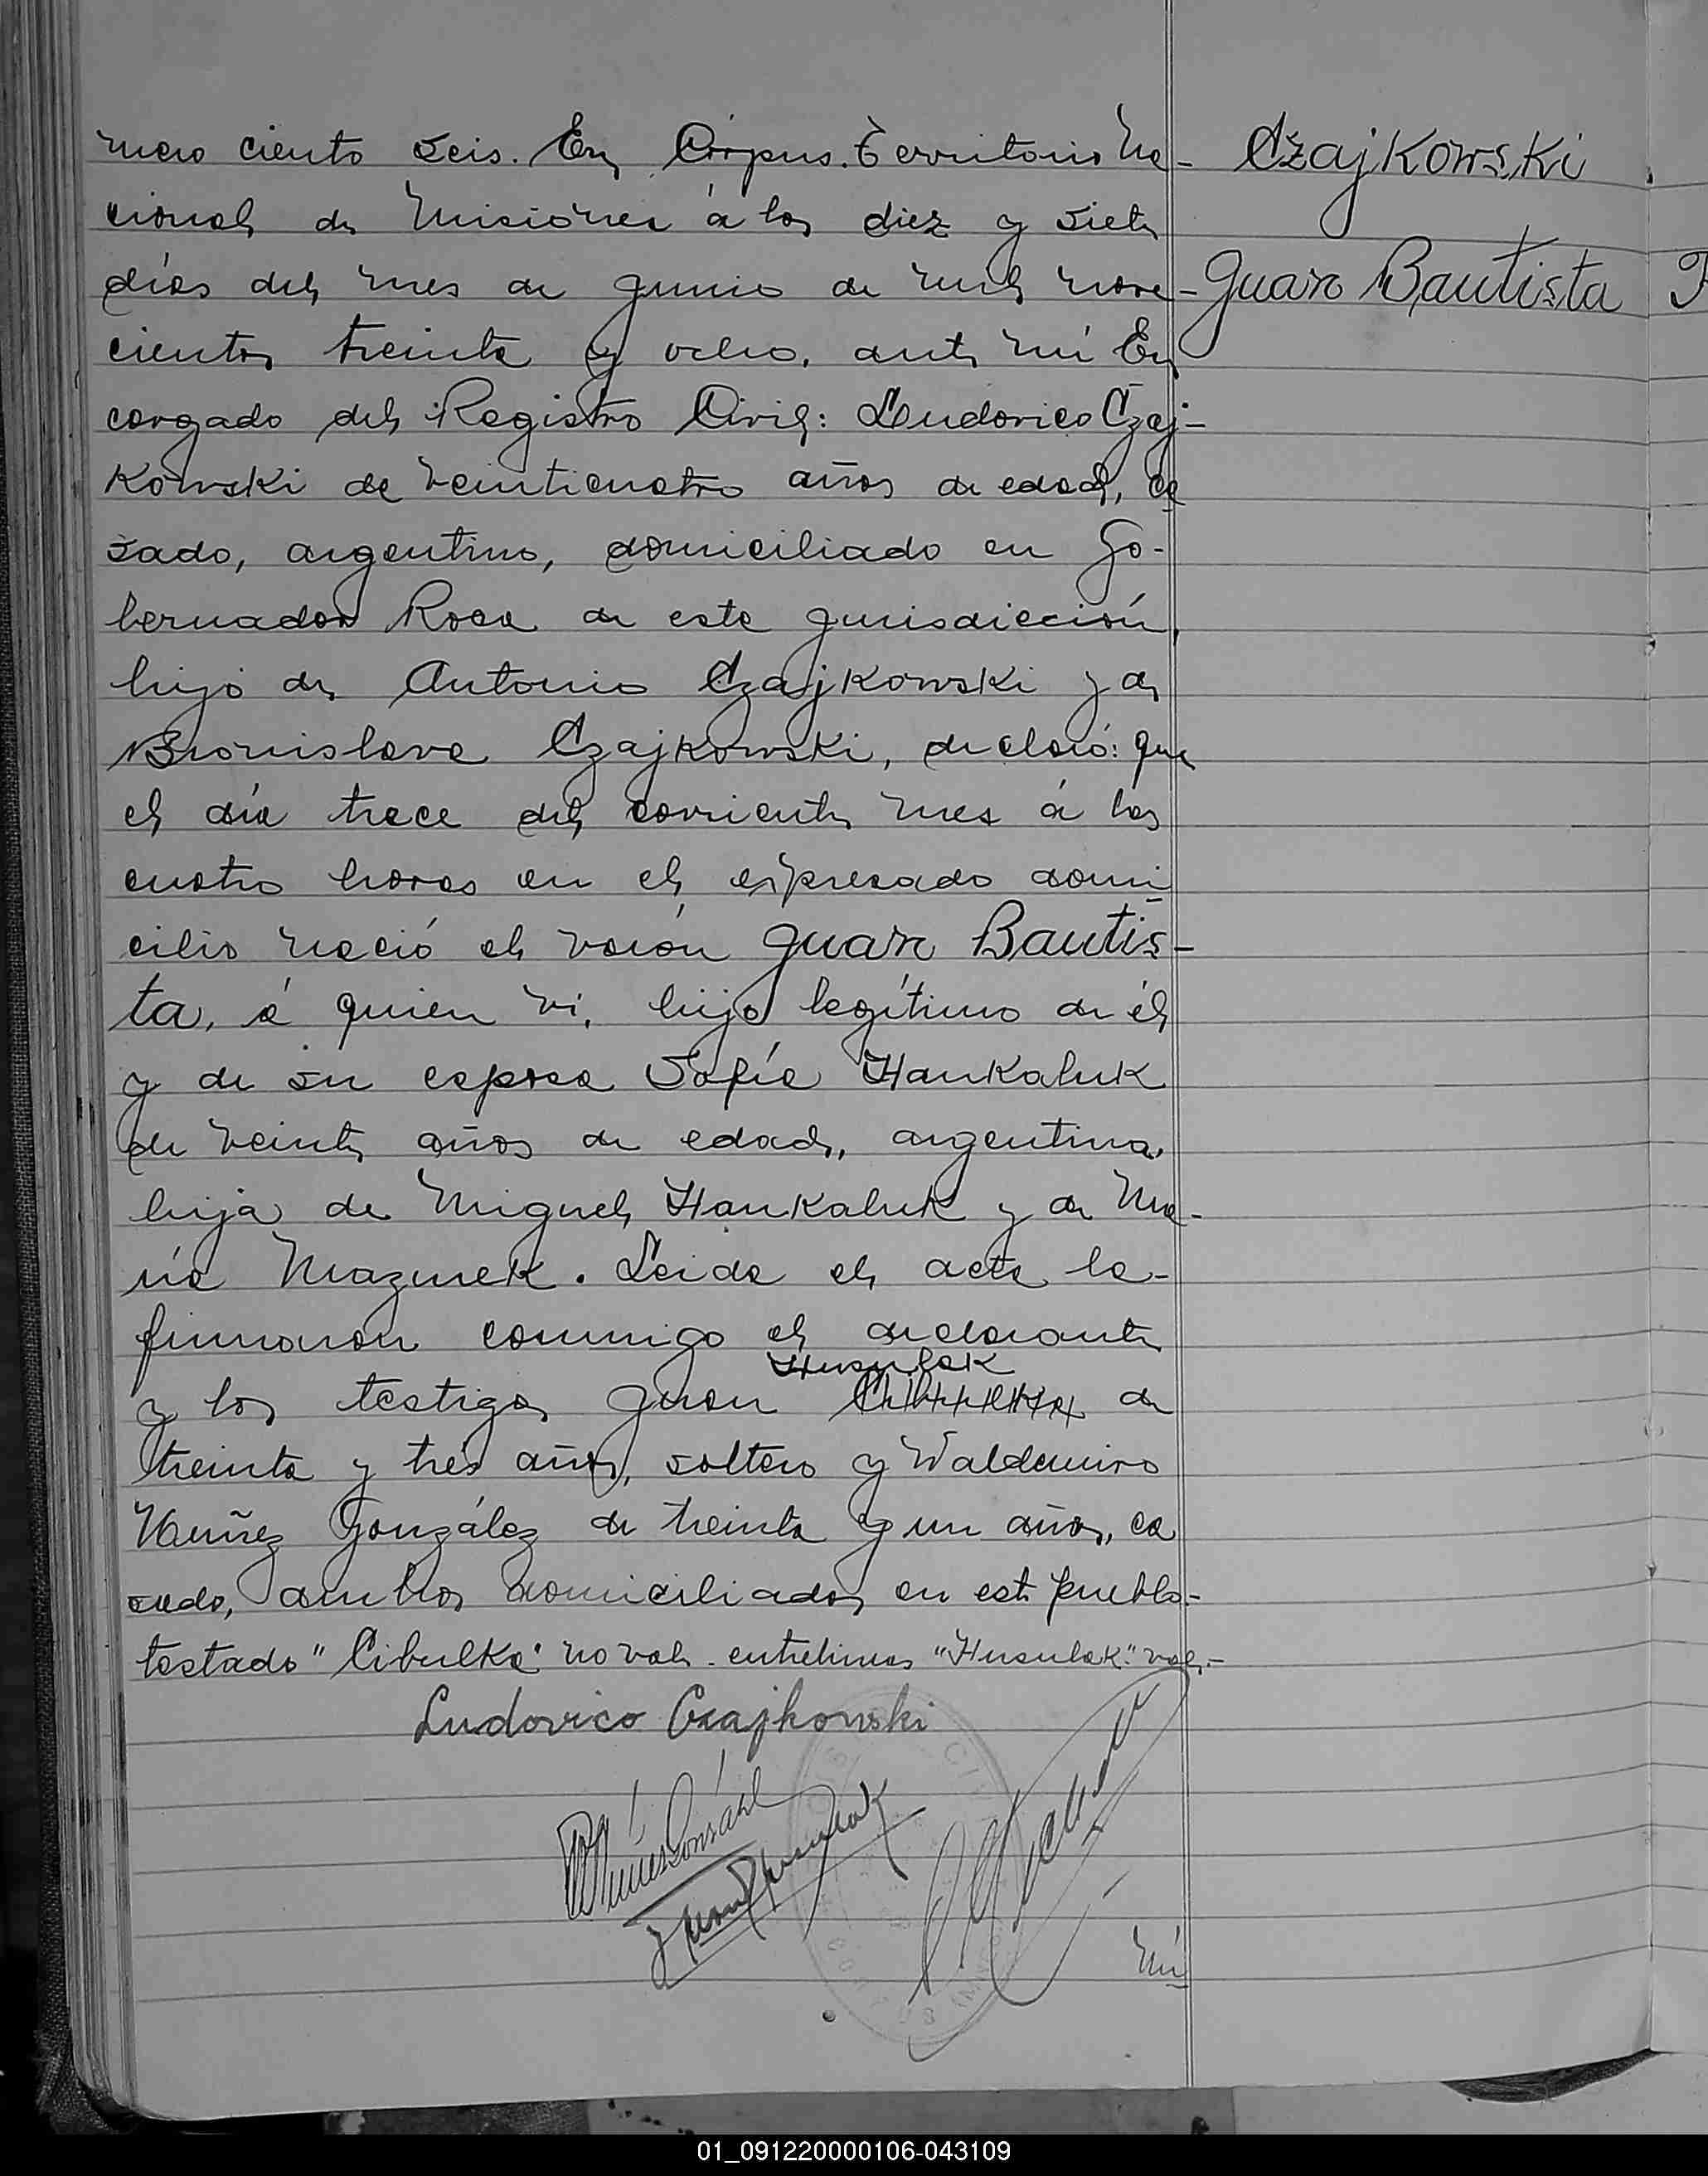 mero ciento seis. En Corpus. Territorio Na-
cional de Misiones á los diez y siete
días del mes de Junio de mil nove-
cientos treinta y ocho, ante mí En
cargado del Registro Civil: Ludovico Czaj-
Kowski de veinticuatro años de edad, ca
sado, argentino, domiciliado en Go-
bernador Roca de esta jurisdicción,
hijo de Antonio Czajkowski y de
Bronislava Czajkowski, declaró: que
el día trece del corriente mes á las
cuatro horas en el expresado domi
cilio nació el varón Juan Bautis-
ta, á quien vi, hijo legítimo de él
y de su esposa Sofía Hankaluk
de veinte años de edad, argentina,
hija de Miguel Hankaluk y de Ma-
ría Mazurek. Leida el acta la-
firmaron conmigo el declarante
Husulak
y los testigos Juan Cibulka de
treinta y tres años, soltero y Waldemiro
Nuñez González de treinta y un años, ca
sado, ambos domiciliados en este pueblo-
testado "Cibulka" no vale. entrelineas "Husulak" vale.-
Ludovico Czajkowski
WNúñez González
Juan Husulak
mí
Czajkowski
Juan Bautista
01_091220000106-043109